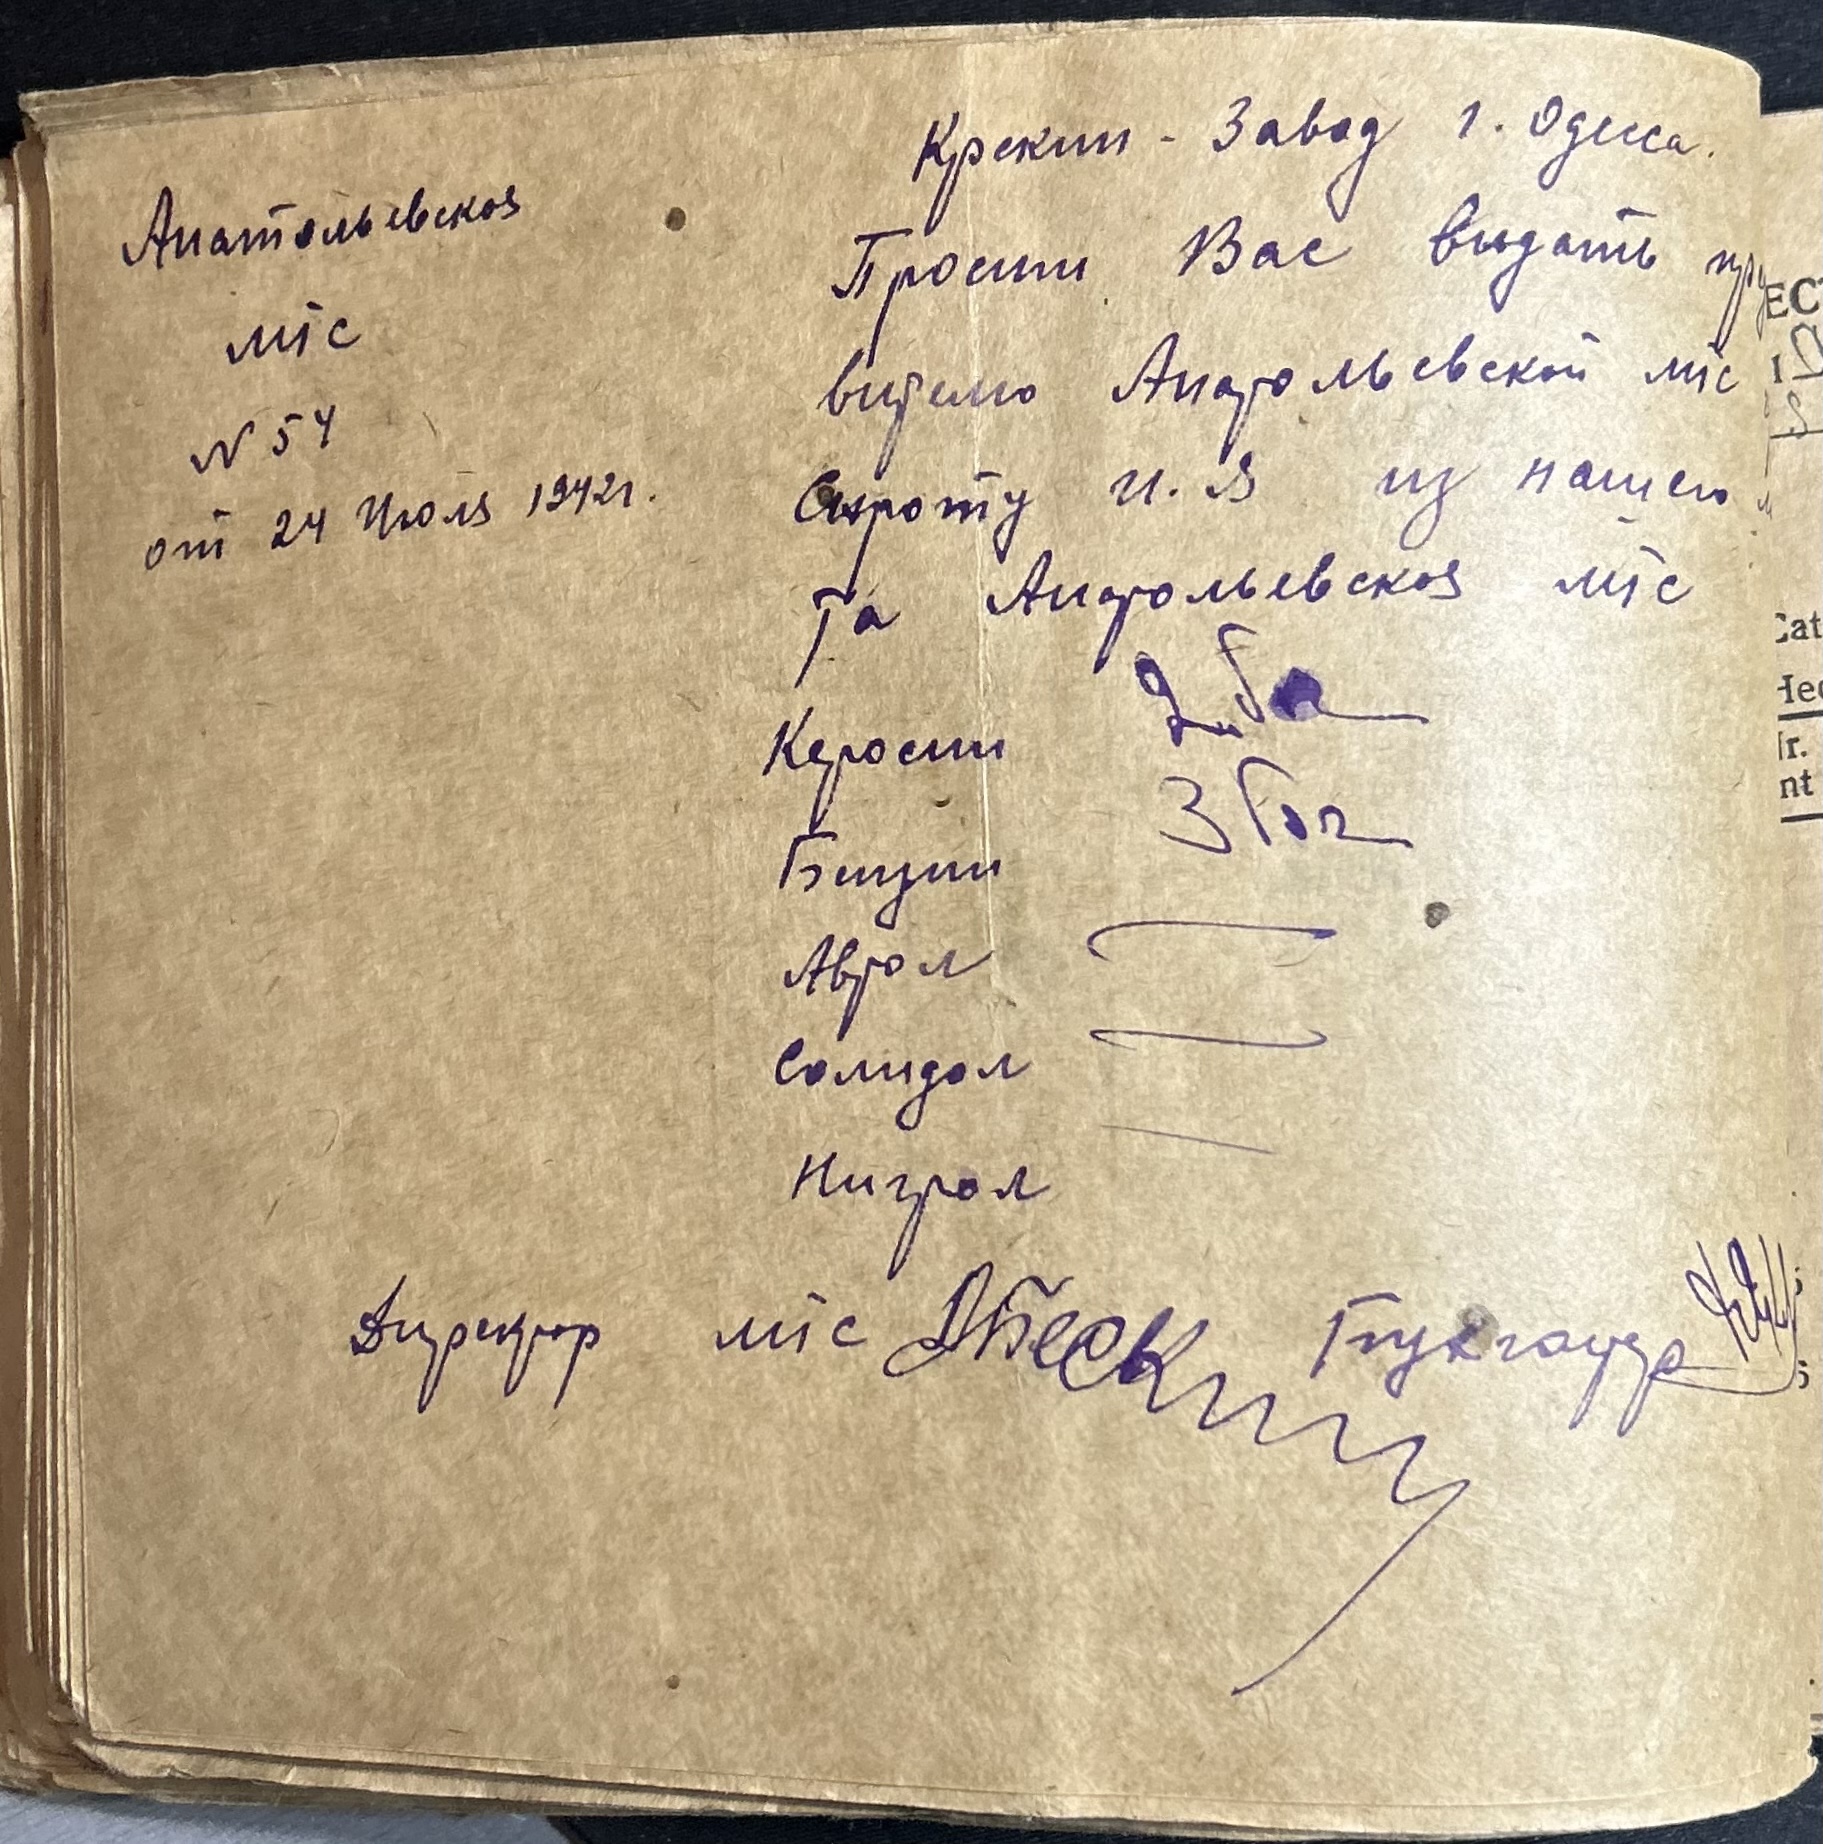 Анатольевская
мтс
N 54
от 24 Июля 1942г.
Крекин - Завод г. Одесса.
Просим Вас выдать пред
вителю Анатольевской мтс
Сироту И. Я из нашего
та Анатольевская мтс
Керосин 2 бо
Бензин 3 боч
Автол
Солидол
Нигрол
Директор мтс Бухгалтер
ЕС
Cat
Nr.
nt